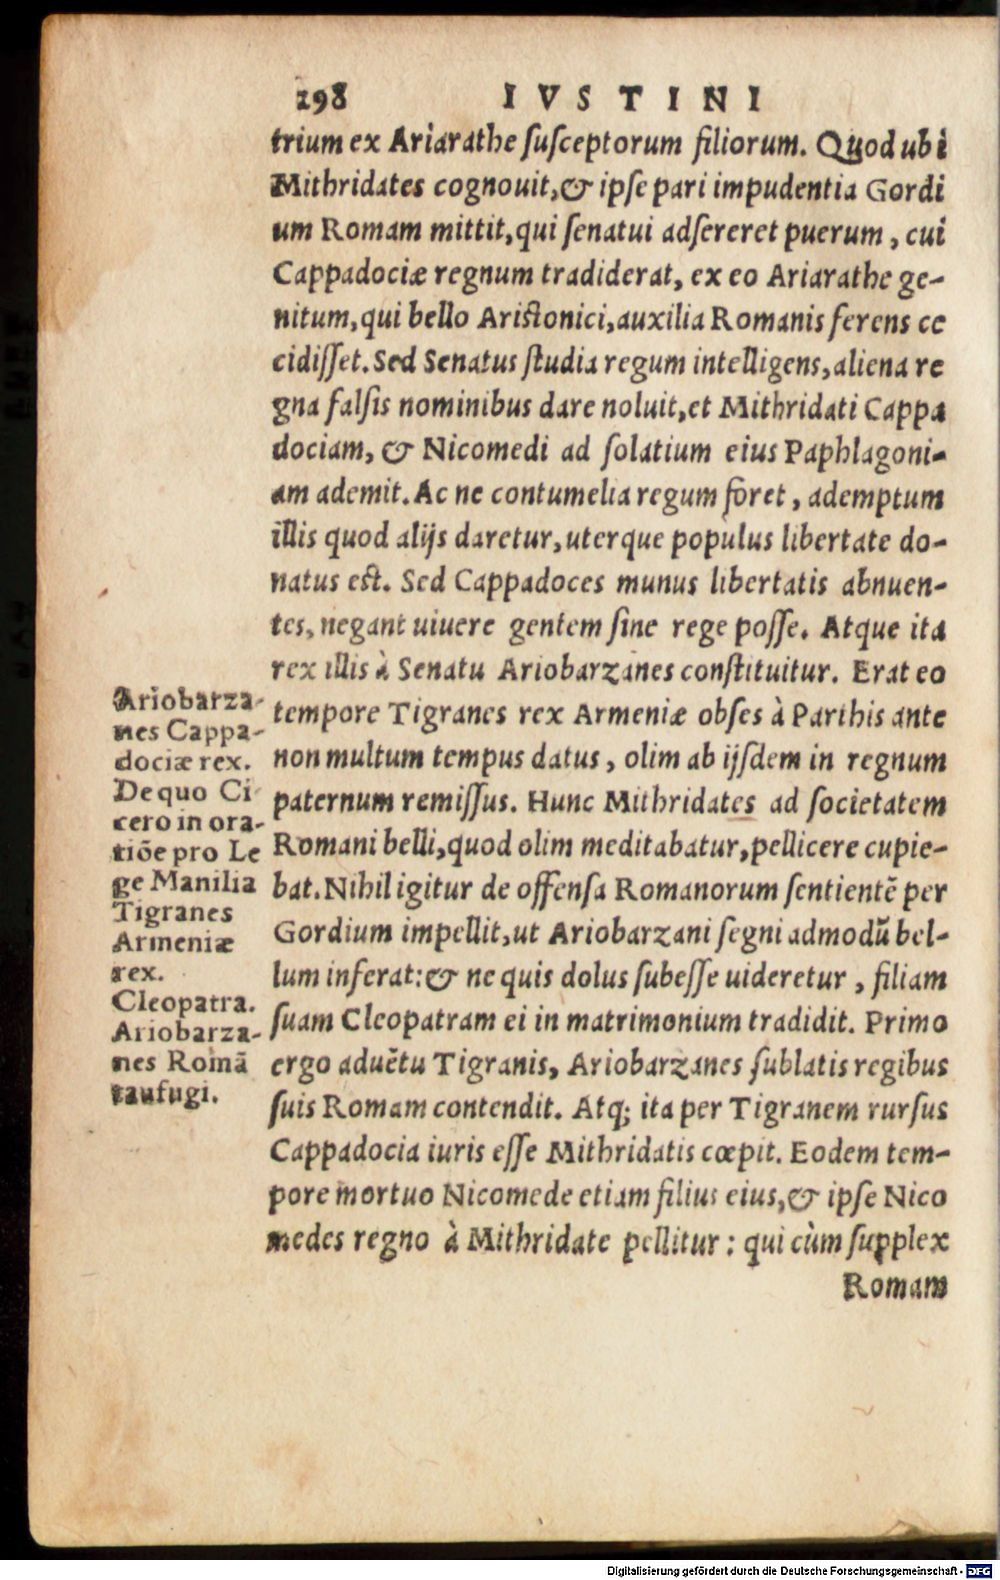 298 IVSTINI
trium ex Ariarathe ſuſceptorum filiorum. Quod ubi
Mithridates cognouit,& ipſe pari impudentia Gordi
um Romam mittit,qui ſenatui adſereret puerum, cui
Cappadociæ regnum tradiderat, ex eo Ariarathe ge-
nitum,qui bello Ariſtonici,auxilia Romanis ferens ce
cidiſſet. Sed Senatus ſtudia regum intelligens,aliena re
gna falſis nominibus dare noluit,et Mithridati Cappa
dociam, & Nicomedi ad ſolatium eius Paphlagoni-
am ademit. Ac ne contumelia regum foret, ademptum
illis quod alijs daretur,uterque populus libertate do-
natus eſt. Sed Cappadoces munus libertatis abnuen-
tes, negant uiuere gentem ſine rege poſſe. Atque ita
rex illis à Senatu Ariobarzanes conſtituitur. Erat eo
tempore Tigranes rex Armeniæ obſes à Parthis ante
non multum tempus datus, olim ab ijſdem in regnum
paternum remiſſus. Hunc Mithridates ad ſocietatem
Romani belli,quod olim meditabatur,pellicere cupie-
bat. Nihil igitur de offenſa Romanorum ſentientē per
Gordium impellit,ut Ariobarzani ſegni admodũ bel-
lum inferat:& ne quis dolus ſubeſſe uideretur, filiam
ſuam Cleopatram ei in matrimonium tradidit. Primo
ergo aduētu Tigranis, Ariobarzanes ſublatis regibus
ſuis Romam contendit. Atq; ita per Tigranem rurſus
Cappadocia iuris eſſe Mithridatis cœpit. Eodem tem-
pore mortuo Nicomede etiam filius eius,& ipſe Nico
medes regno à Mithridate pellitur: qui cùm ſupplex
Romam
Ariobarza-
nes Cappa-
dociæ rex.
De quo Ci
cero in ora-
tiōe pro Le
ge Manilia
Tigranes
Armeniæ
rex.
Cleopatra.
Ariobarza-
nes Romā
taufugi.
Digitalisierung gefördert durch die Deutsche Forschungsgemeinschaft - DFG